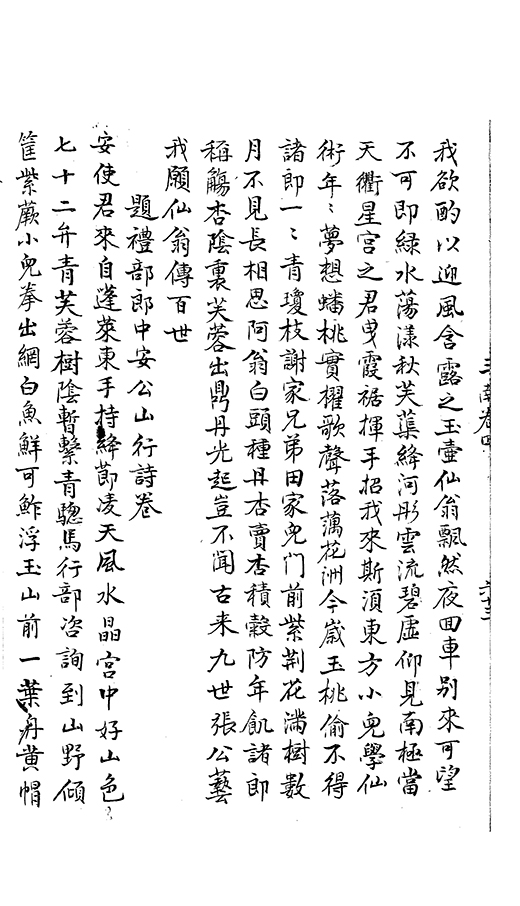 我欲酌以迎風含露之玉壺仙翁飄然夜回車别來可望
不可即緑水蕩漾秋芙蕖絳河彤雲流碧虚仰見南極當
天衢星宫之君曳霞裾揮手招我來斯須東方小兒學仙
術年〻夢想蟠桃實櫂歌聲落藕花洲今歲玉桃偷不得
諸郎一〻青瓊枝謝家兄弟田家兒門前紫荆花滿樹數
月不見長相思阿翁白頭種丹杏賣杏積穀防年飢諸郎
稱觴杏陰裏芙蓉出鼎丹光起豈不聞古来九世張公藝
我願仙翁傳百世
題禮部郎中安公山行詩卷
安使君來自蓬萊東手持絳節凌天風水晶宫中好山色
七十二弁青芙蓉樹陰暫繫青驄馬行部咨詢到山野傾
筐紫蕨小兒拳出網白魚鮮可鮓浮玉山前一葉舟黄帽